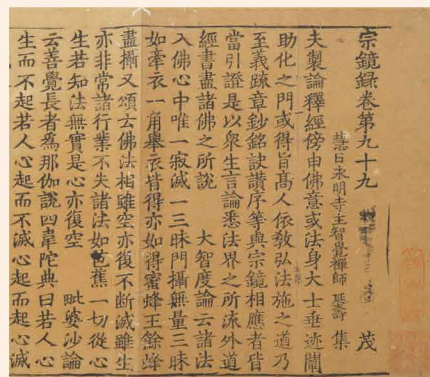 宗鏡録卷第九十九 茂
慧日永明寺主智覺禪師 延壽 集
夫製論釋經傍申佛意或法身大士垂迹闡
助化之門或得旨高人依教弘法施之道乃
至義疏章鈔銘訣讚序等與宗鏡相應者皆
當引證是以衆生言論悉法界之所流外道
經書盡諸佛之所說 大智度論云諸法
入佛心中唯一寂滅一三昧門攝無量三昧
如牽衣一角舉衣皆得亦如得蜜蜂王餘蜂
盡攝又頌古佛法相雖空亦復不斷滅雖生
亦非常諸行業不失諸法如芭蕉一切從心
生若知法無實是心亦復空 毗婆沙論
云善覺長者爲那伽說四韋陀典曰若人心
生而不起若人心起而不滅心起而起心滅